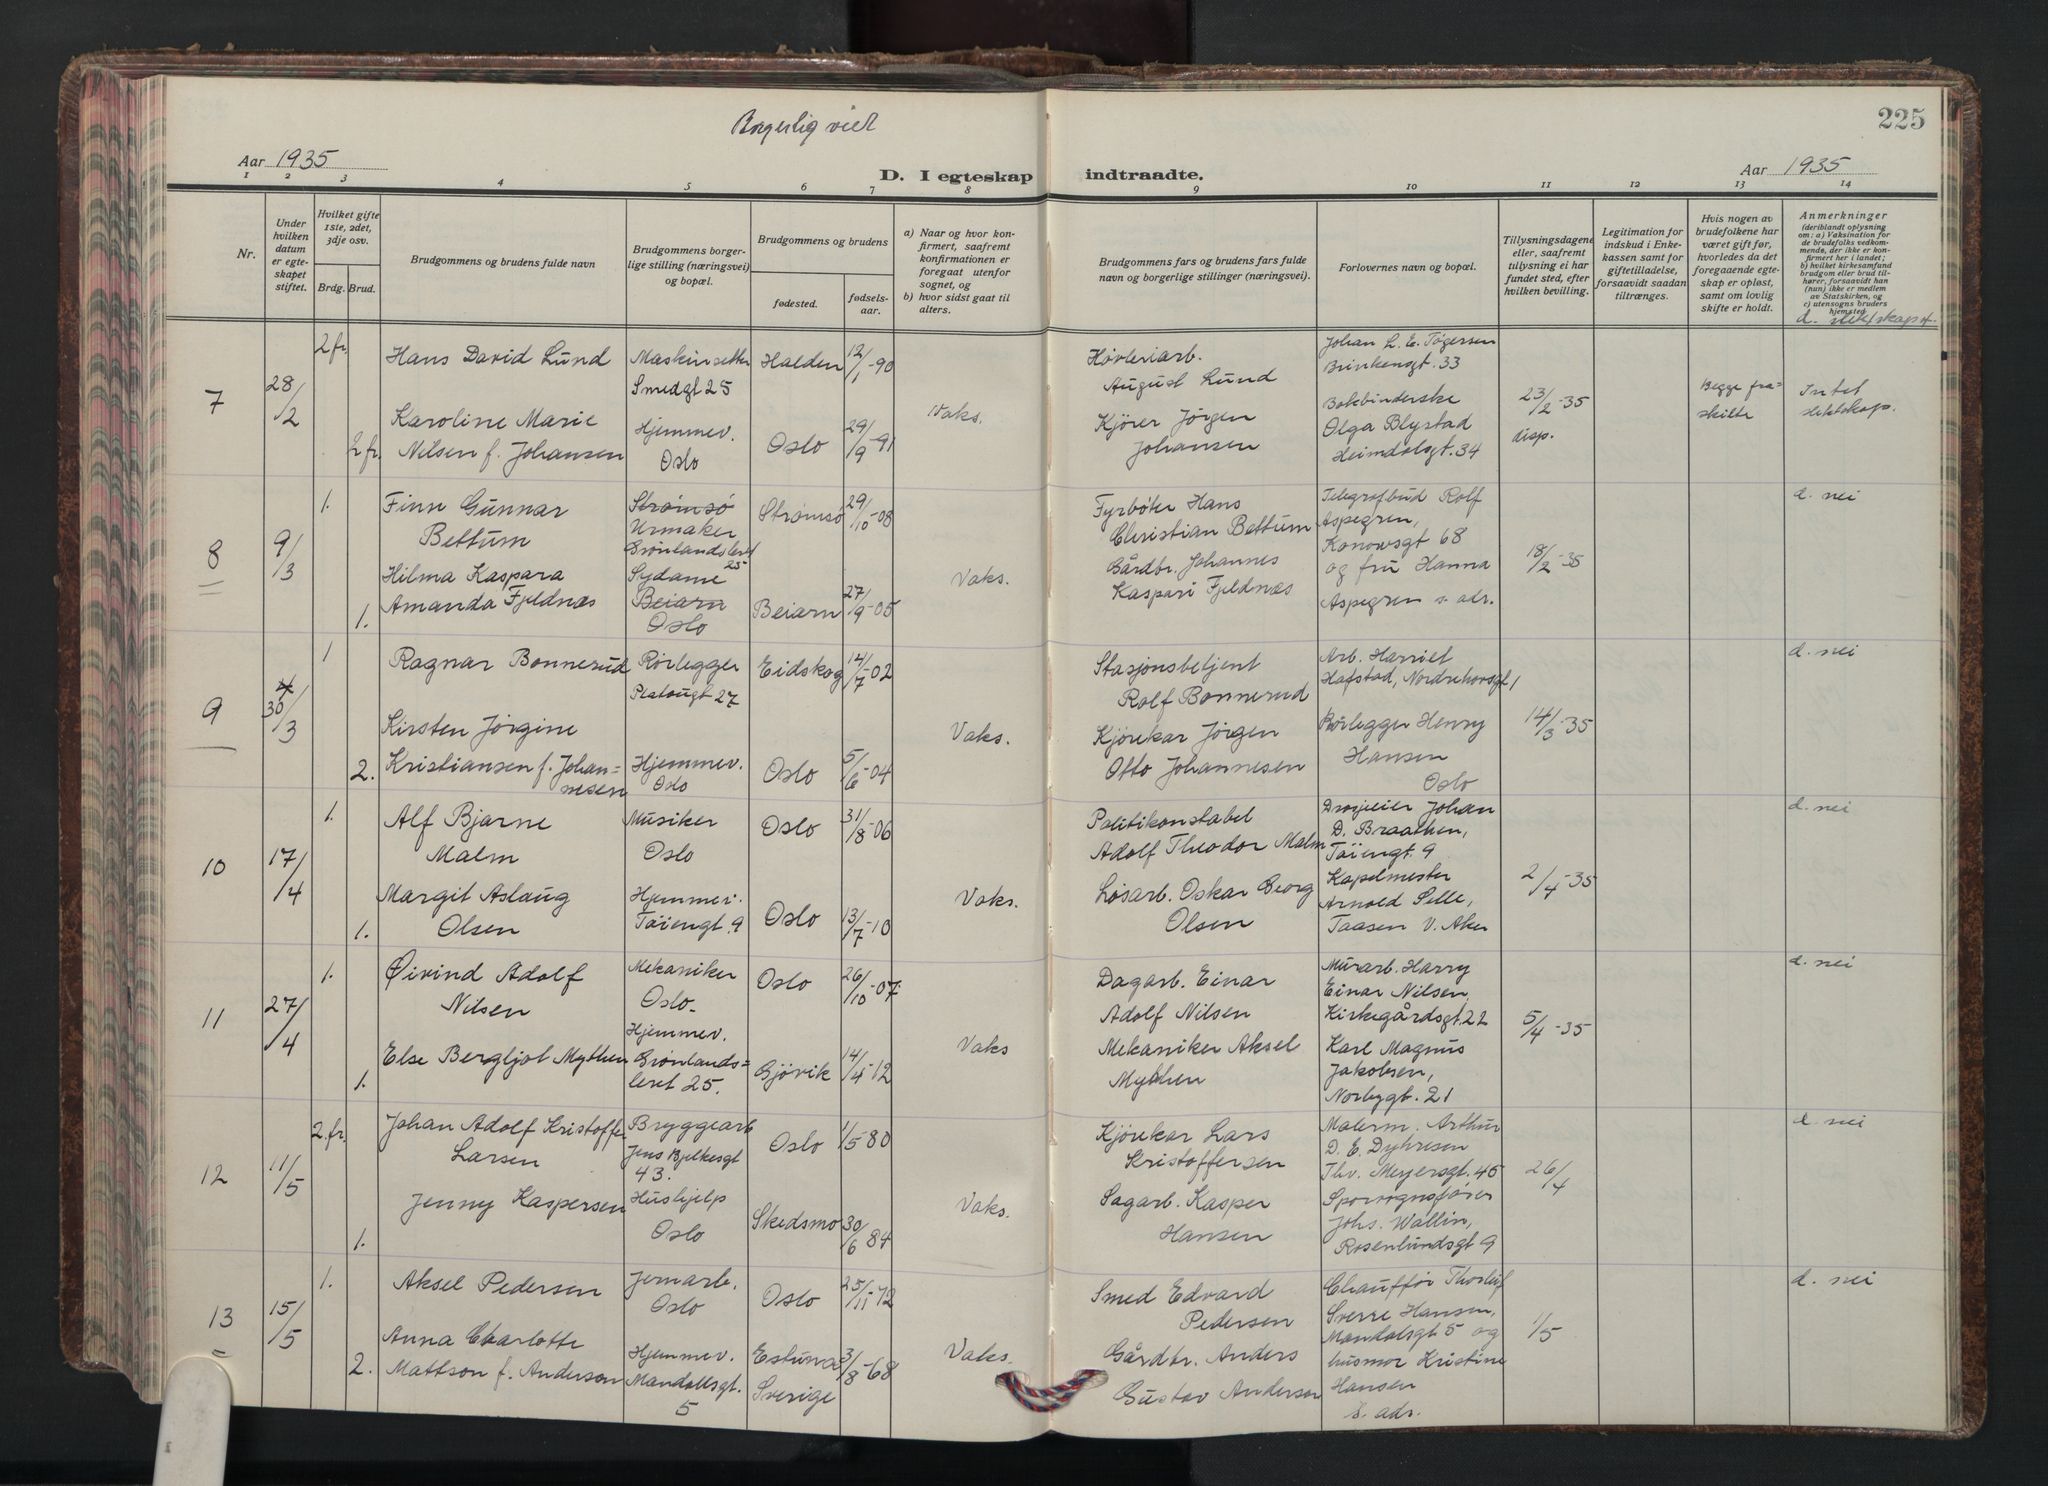 225
Borgerlig viet
Aar 1935
D. I egteskap indtraadte.
Aar 1935
1 2 3 4 5 6 7 8 9 10 11 12 13 14
Nr.
Under hvilken datum er egteskapet stiftet.
Hvilket gifte 1ste, 2det, 3dje osv.
Brdg. Brud.
Brudgommens og brudens fulde navn
Brudgommens borgerlige stilling (næringsvei) og bopæl.
Brudgommens og brudens
fødested. fødselsaar.
a) Naar og hvor konfirmert, saafremt konfirmationen er foregaat utenfor sognet, og
b) hvor sidst gaat til alters.
Brudgommens fars og brudens fars fulde navn og borgerlige stillinger (næringsvei).
Forlovernes navn og bopæl.
Tillysningsdagene eller, saafremt tillysning ei har fundet sted, efter hvilken bevilling.
Legitimation for indskud i Enkekassen samt for giftetilladelse, forsaavidt saadan tiltrænges.
Hvis nogen av brudefolkene har været gift før, hvorledes da det foregaaende egteskap er opløst, samt om lovlig skifte er holdt.
Anmerkninger
(deriblandt oplysning om: a) Vaksination for de brudefolks vedkommende, der ikke er konfirmert her i landet; b) hvilket kirkesamfund brudgom eller brud tilhører, forsaavidt han (nun) ikke er medlem av Statskirken, og c) utensogns bruders hjemsted
d. slektskap
7
28/2
2 fr.
Hans David Lund
Maskinsetter
Smedgt 25
Halden
12/1-90
2 fr.
Karoline Marie
Nilsen f. Johansen
Hjemmev.
Oslo
Oslo
29/9-91
Vaks.
Høvleriarb.
August Lund
Kjører Jörgen
Johansen
Johan L. E. Tøgersen
Brinkensgt. 33
Bokbinderske
Olga Blystad
Heimdalsgt. 34
23/2-35
disp.
Begge fraskilte
Intet
slektskap.
8
9/3
1.
Finn Gunnar
Bettum
Strømsö
Urmaker
Grønlandsleret
25
Strømsö
29/10-08
1.
Hilma Kaspara
Amanda Fjeldnæs
Sydame
Beiarn
Oslo
Beiarn
27/9-05
Vaks.
Fyrbøter Hans
Christian Bettum
Gårdbr. Johannes
Kaspari Fjeldnæs
Telegrafbud Rolf
Aspegren,
Konowsgt 68
og fru Hanna
Aspegren s. adr.
18/2-35
d. nei
9
30/3
1
Ragnar Bonnerud
Rørlegger
Platougt 27
Eidskog
14/7-02
2.
Kirsten Jørgine
Kristiansen f. Johan=
nesen
Hjemmev.
Oslo
Oslo
5/6-04
Vaks.
Stasjonsbetjent
Rolf Bonnerud
Kjørekar Jørgen
Otto Johannesen
Arb. Harriet
Hafstad, Nordrehovsgt 1
Rørlegger Henry
Hansen
Oslo
14/3-35
d. nei
10
17/4
1.
Alf Bjarne
Malm
Musiker
Oslo
Oslo
31/8-06
1.
Margit Aslaug
Olsen
Hjemmev.
Töiengt. 9
Oslo
13/7-10
Vaks.
Politikonstabel
Adolf Theodor Malm
Løsarb. Oskar Georg
Olsen
Drosjeeier Johan
D. Braathen,
Töiengt. 9
Kapelmester
Arnold Selle,
Taasen V. Aker
2/4-35
d. nei
11
27/4
1.
Øivind Adolf
Nilsen
Mekaniker
Oslo
Oslo
26/10-07
1.
Else Bergljot Mythen
Hjemmev.
Grønlands=
leret 25.
Gjövik
14/4-12
Vaks
Dagarb. Einar
Adolf Nilsen
Mekaniker Aksel
Mythen
Murarb. Harry
Einar Nilsen,
Kirkegårdsgt. 22
Karl Magnus
Jakobsen,
Norbygt. 21
5/4-35
d. nei
12
11/5
2. fr.
Johan Adolf Kristoffer
Larsen
Bryggearb
Jens Bjelkesgt
43.
Oslo
1/5-80
1.
Jenny Kaspersen
Hushjelp
Oslo
Skedsmo
30/6 84
Vaks.
Kjørekar Lars
Kristoffersen
Sagarb. Kasper
Hansen
Malerm. Arthur
D. E. Dyhresen
Thv. Meyersgt. 45
Sporvognsfører
Johs. Wallin,
Rosenlundsgt 9
26/4
d. nei
13
15/5
1.
Aksel Pedersen
Jernarb.
Oslo
Oslo
25/11-72
2.
Anna Charlotte
Mattson f. Anderson
Hjemmev.
Mandalsgt.
5
Estuna
Sverige
3/8-68
Vaks.
Smed Edvard
Pedersen
Gårdbr. Anders
Gustav Anderson
Chauffør Thorleif
Sverre Hansen,
Mandalsgt 5 og
husmor Kristine
Hansen
s. adr.
1/5
d. nei